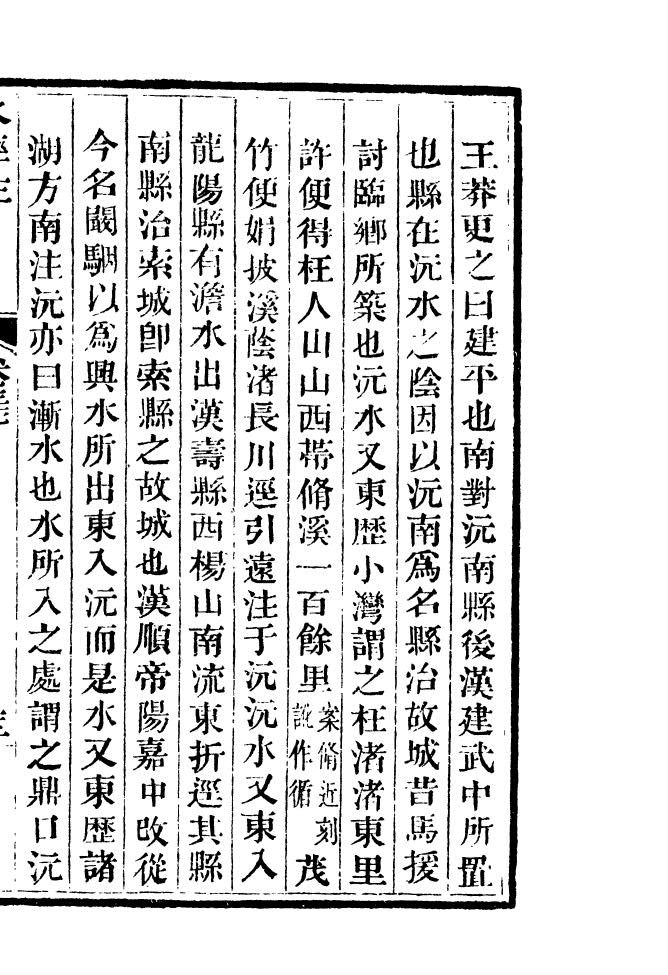 王莽更之曰建平也南對沅南縣後漢建武中所置
也縣在沅水之陰因以沅南爲名縣治故城昔馬援
討臨鄉所築也沅水又東歷小灣謂之枉渚渚東里
許便得枉人山山西帶脩溪一百餘里案脩近刻訛作循茂
竹便娟披溪蔭渚長川逕引遠注于沅沅水又東入
龍陽縣有澹水出漢壽縣西楊山南流東折逕其縣
南縣治索城卽索縣之故城也漢順帝陽嘉中改從
今名闞駰以爲興水所出東入沅而是水又東歷諸
湖方南注沅亦曰漸水也水所入之處謂之鼎口沅
水經注
卷三十七